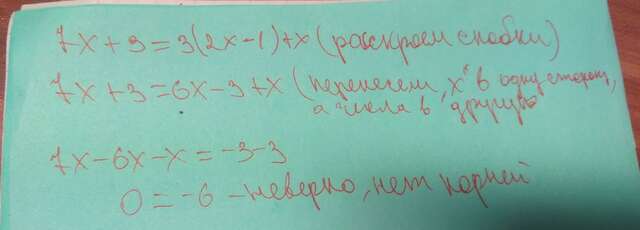 7x+3=3(2x-1)+x (раскроем скобки)
7x+3=6x-3+x (перенесем „x" в одну сторону,
а числа в другую
7x-6x-x=-3-3
0=-6 - неверно, нет корней